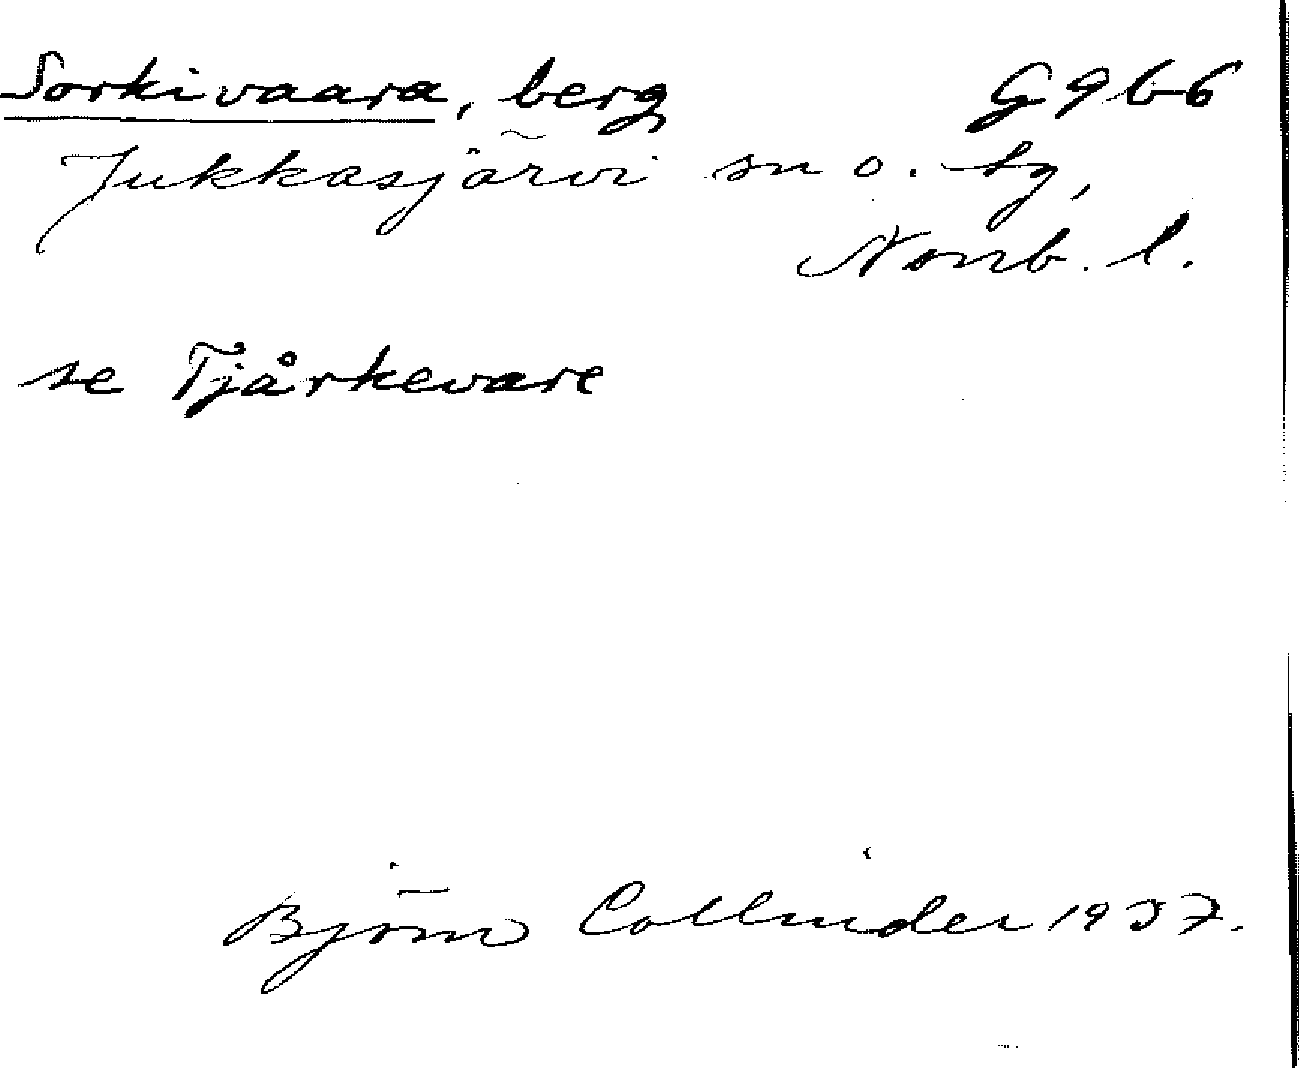 Sorkivaara, berg G9b6
Jukkasjärvi sn o. tg,
Norrb. l.
se Tjårkevare
Björn Collinder 1937.